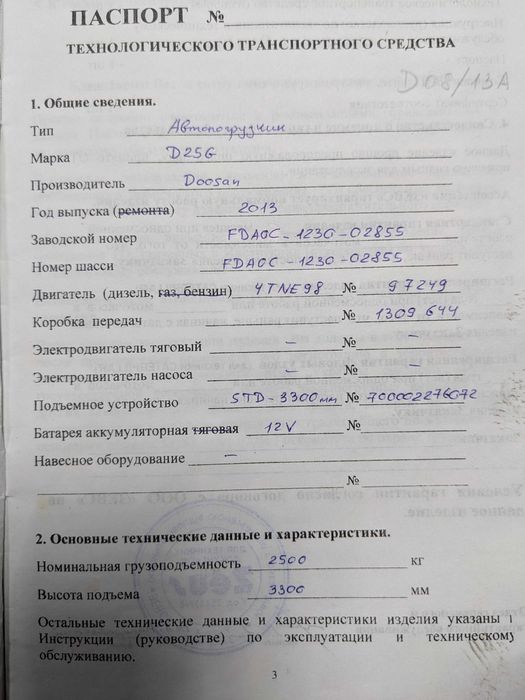 ПАСПОРТ №
ТЕХНОЛОГИЧЕСКОГО ТРАНСПОРТНОГО СРЕДСТВА
D08/13A
1. Общие сведения.
Тип Автопогрузчик
Марка D25G
Производитель Doosan
Год выпуска (ремонта) 2013
Заводской номер FDA0C-1230-02855
Номер шасси FDA0C-1230-02855
Двигатель (дизель, газ, бензин) 4TNE98 № 97249
Коробка передач № 1309 644
Электродвигатель тяговый – № –
Электродвигатель насоса – № –
Подъемное устройство STD-3300мм № 700002276072
Батарея аккумуляторная тяговая 12V №
Навесное оборудование –
№
2. Основные технические данные и характеристики.
Номинальная грузоподъемность 2500 кг
Высота подъема 3300 мм
Остальные технические данные и характеристики изделия указаны
Инструкции (руководстве) по эксплуатации и техническому
обслуживанию.
3